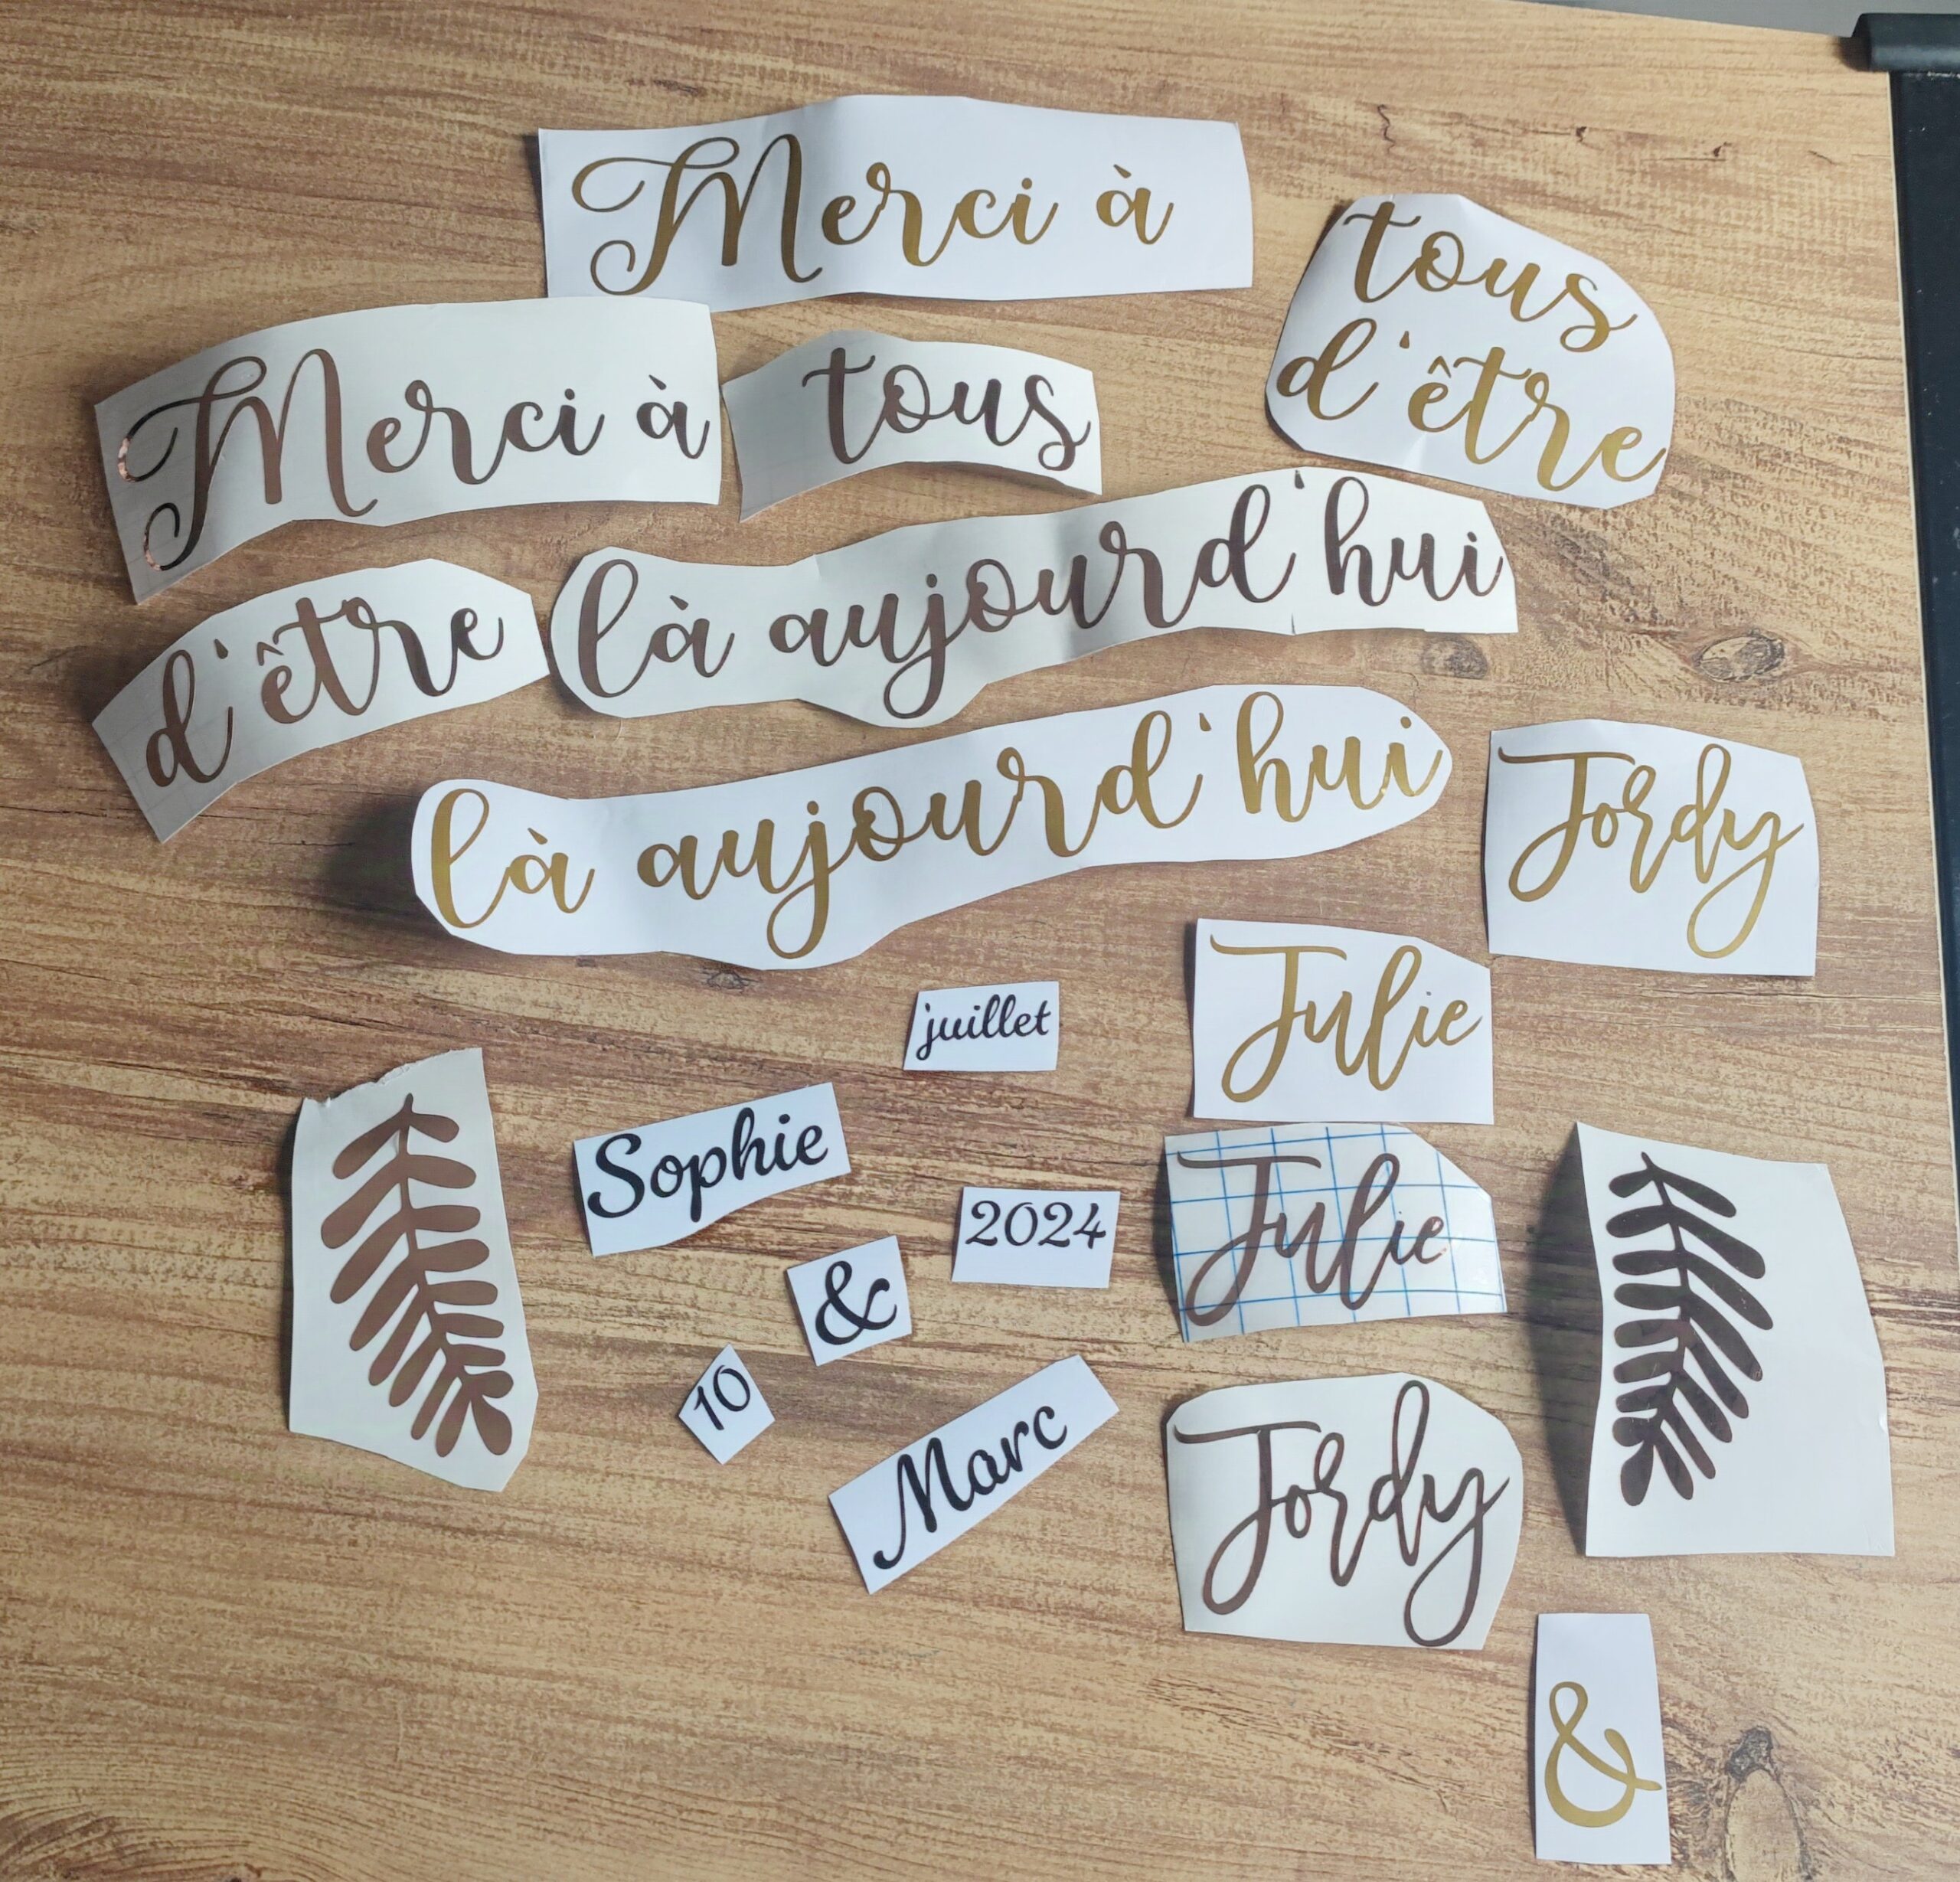 Merci à
tous
d'être
Merci à
tous
d'être
là aujourd'hui
là aujourd'hui
Jordy
Julie
juillet
Sophie
2024
Julie
&
10
Marc
Jordy
&